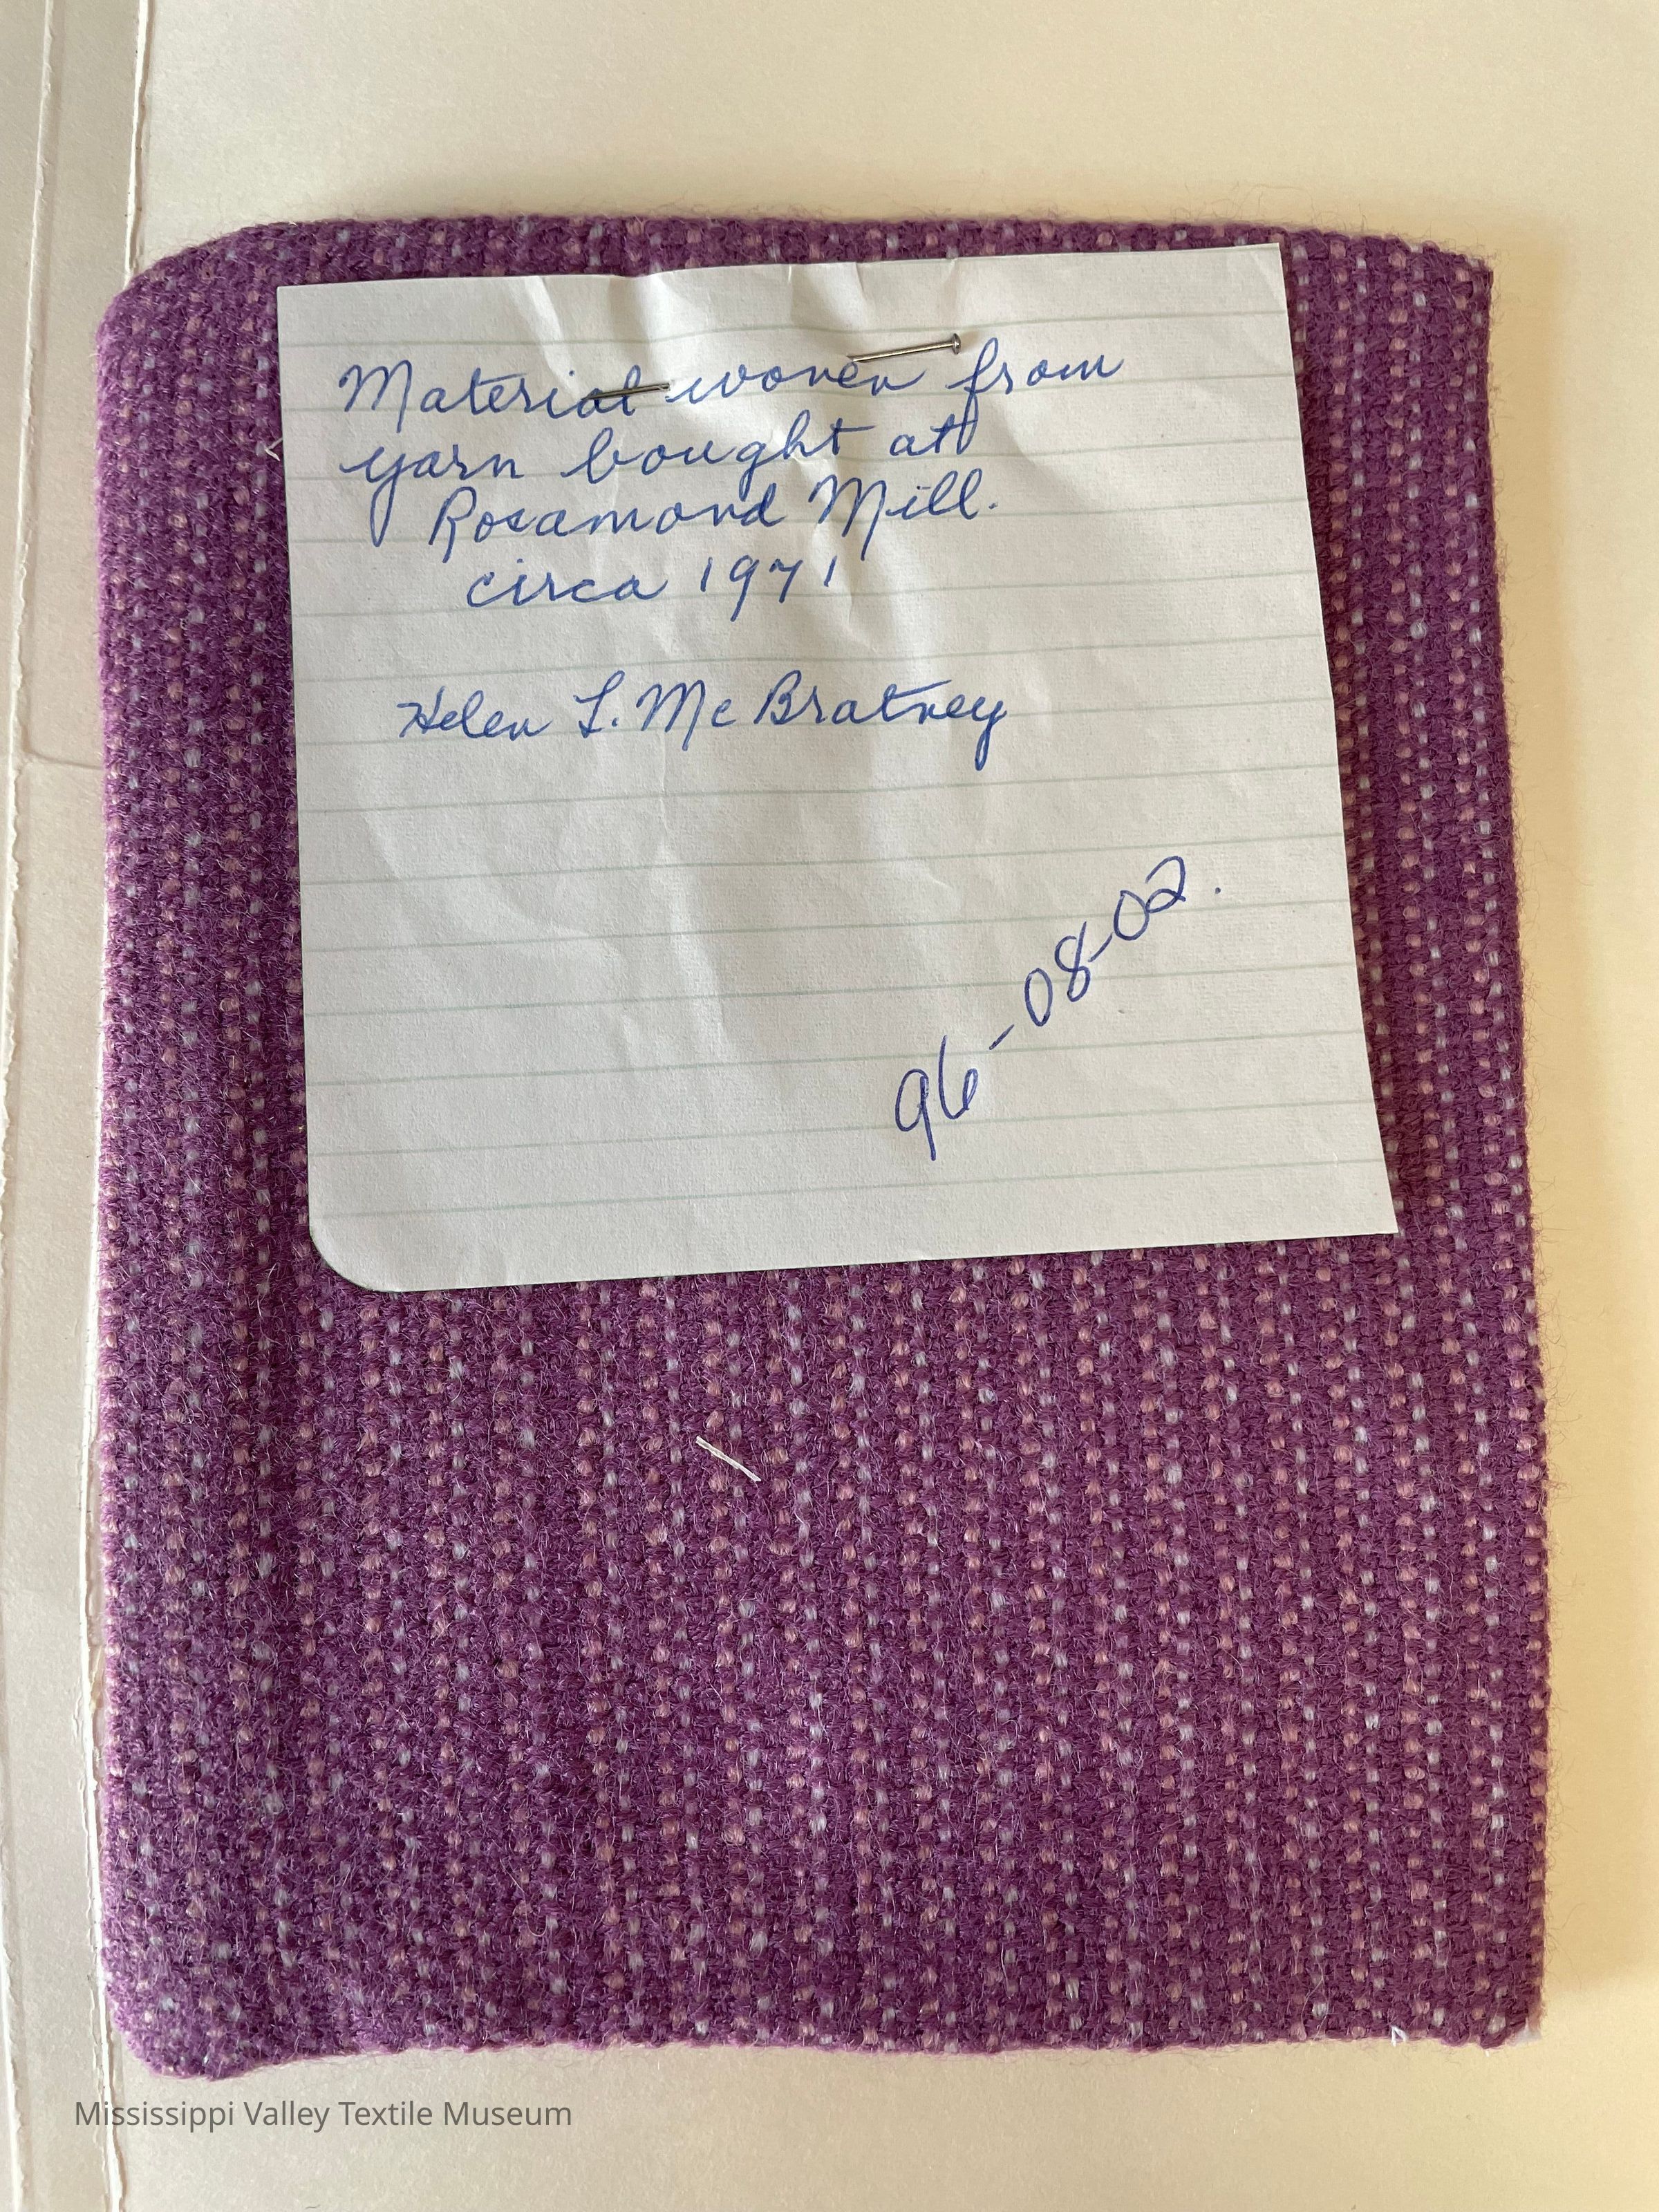 Material woven from
yarn bought at
Rosamond Mill.
circa 1971
Helen L. McBratney
96-08-02.
Mississippi Valley Textile Museum